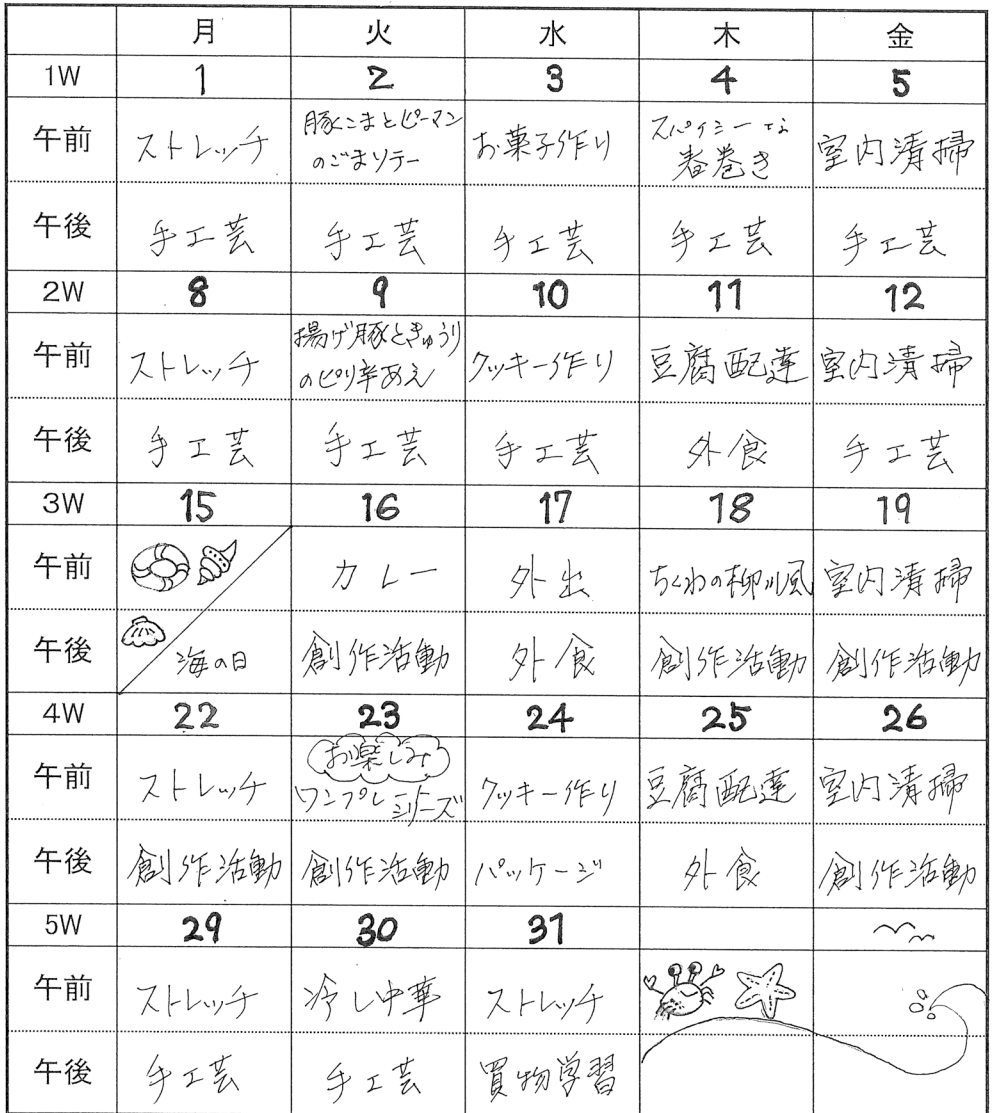 月 火 水 木 金
1W 1 2 3 4 5
午前 ストレッチ 豚こまとピーマン お菓子作り スパイシーな 室内清掃
のごまソテー 春巻き
午後 手工芸 手工芸 手工芸 手工芸 手工芸
2W 8 9 10 11 12
午前 ストレッチ 揚げ豚ときゅうり クッキー作り 豆腐配達 室内清掃
のピリ辛あえ
午後 手工芸 手工芸 手工芸 外食 手工芸
3W 15 16 17 18 19
午前 カレー 外出 ちくわの柳川風 室内清掃
午後 海の日 創作活動 外食 創作活動 創作活動
4W 22 23 24 25 26
午前 ストレッチ お楽しみ クッキー作り 豆腐配達 室内清掃
ワンプレート
シリーズ
午後 創作活動 創作活動 パッケージ 外食 創作活動
5W 29 30 31
午前 ストレッチ 冷し中華 ストレッチ
午後 手工芸 手工芸 買物学習